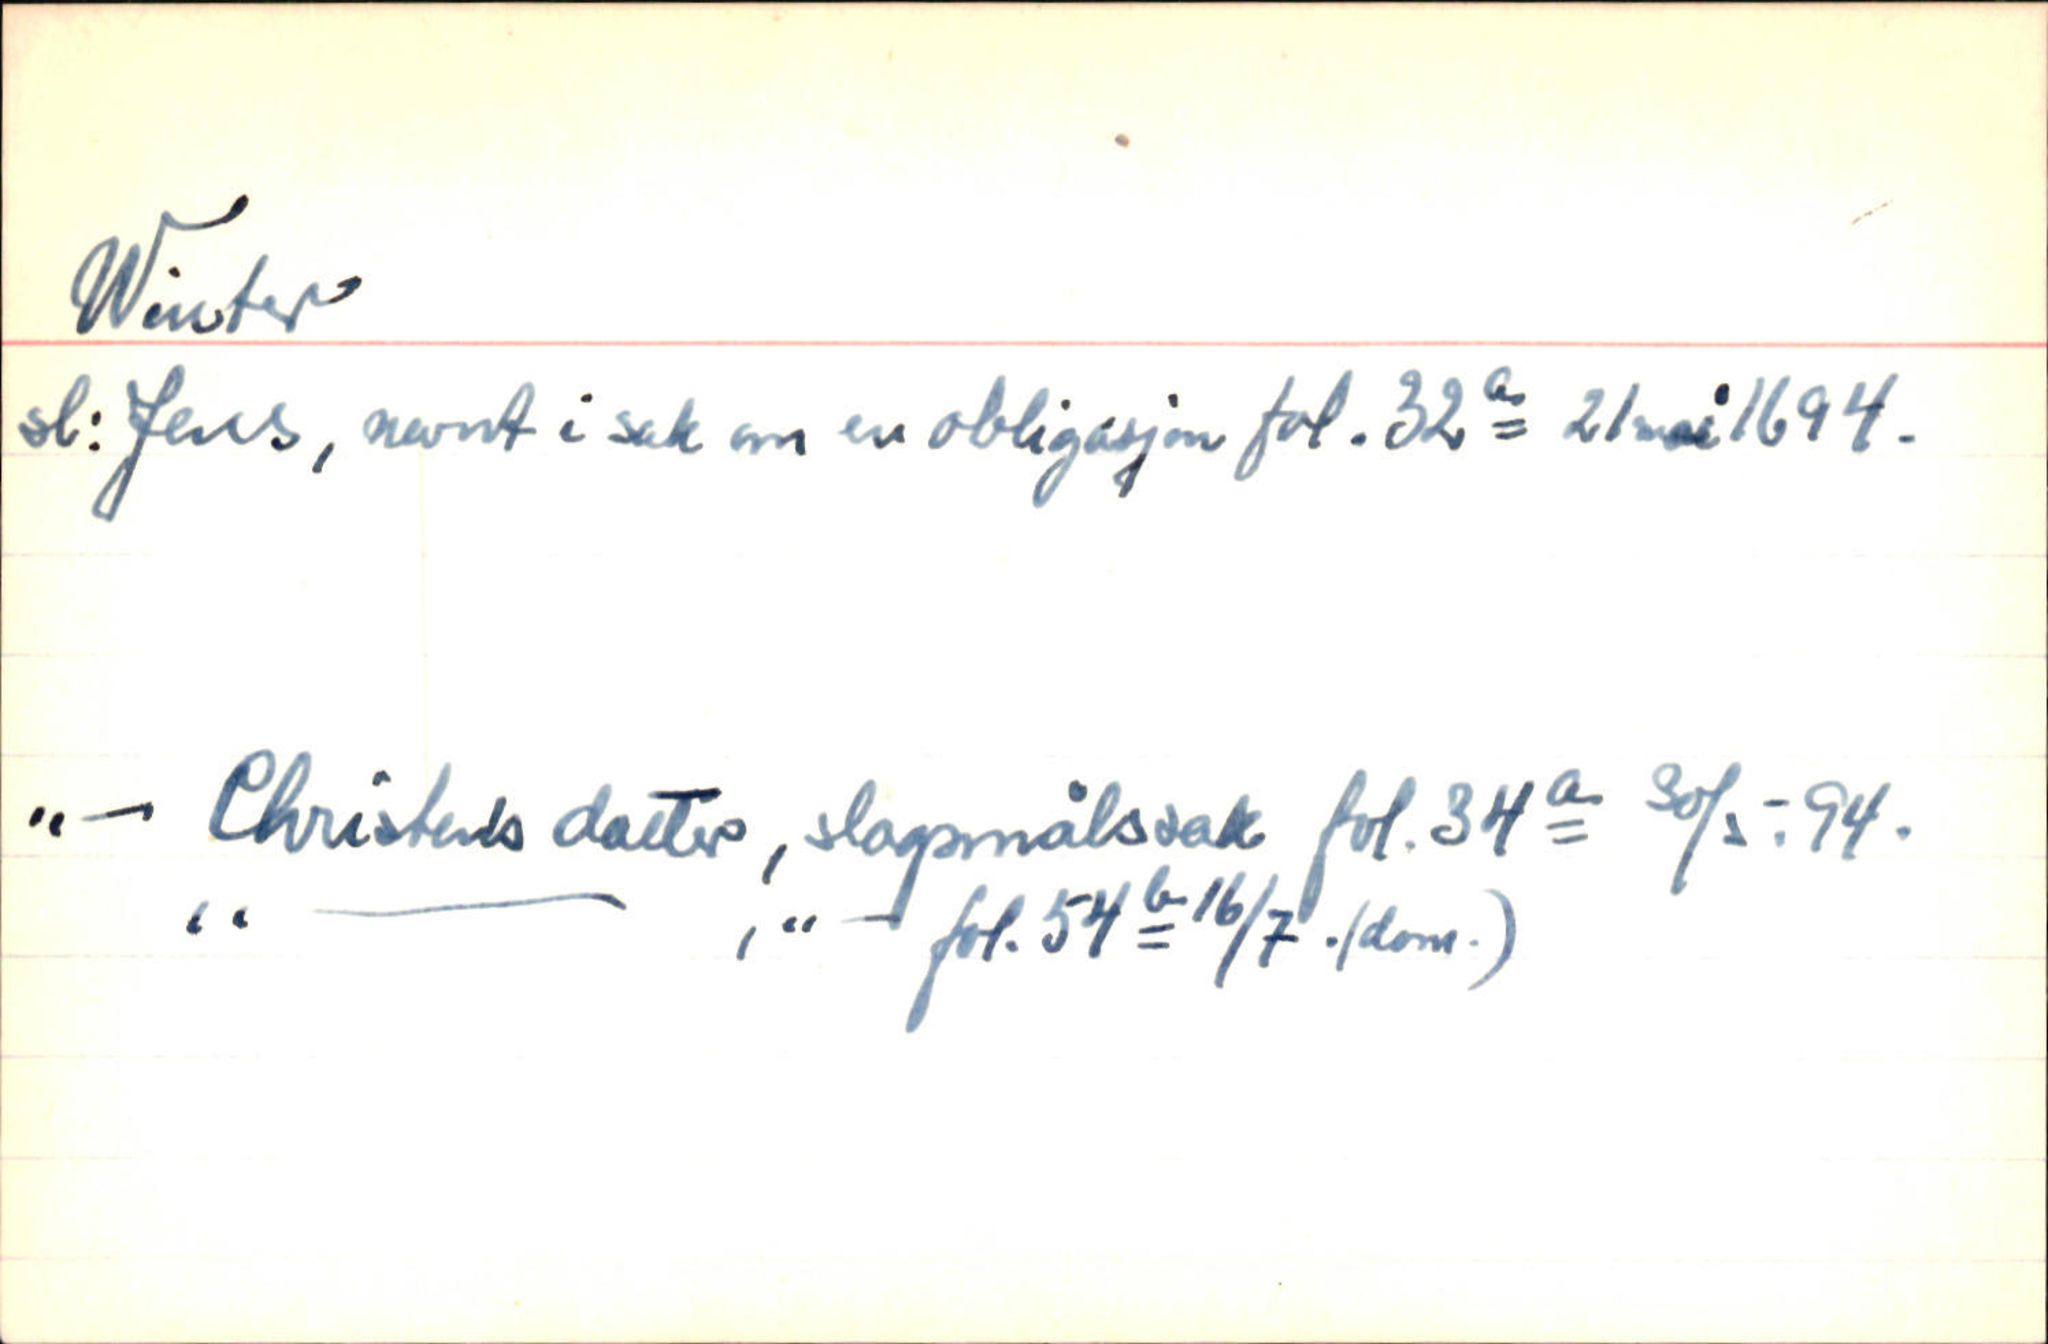 Winter
sl: Jens, nevnt i sak om en obligasjon fol. 32a 21 mai 1694.
"— Christens datter, slagsmålssak fol. 34a 30/5-. 94.
" ——— , "— fol. 54b 16/7. (dom.)